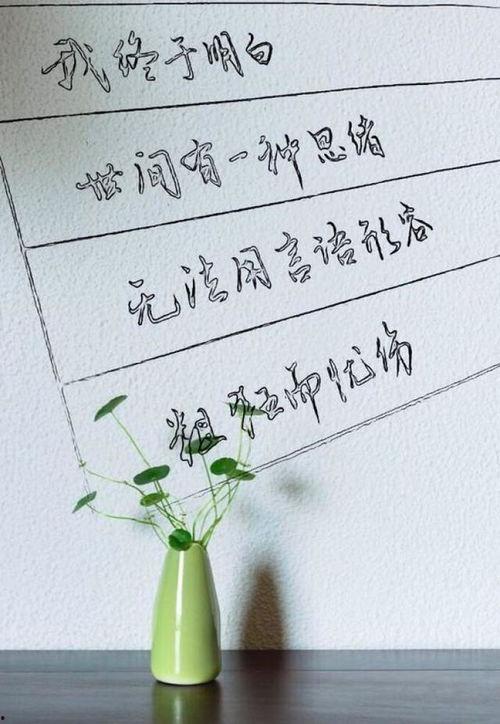 我终于明白
世间有一种思绪
无法用言语形容
粗犷而忧伤